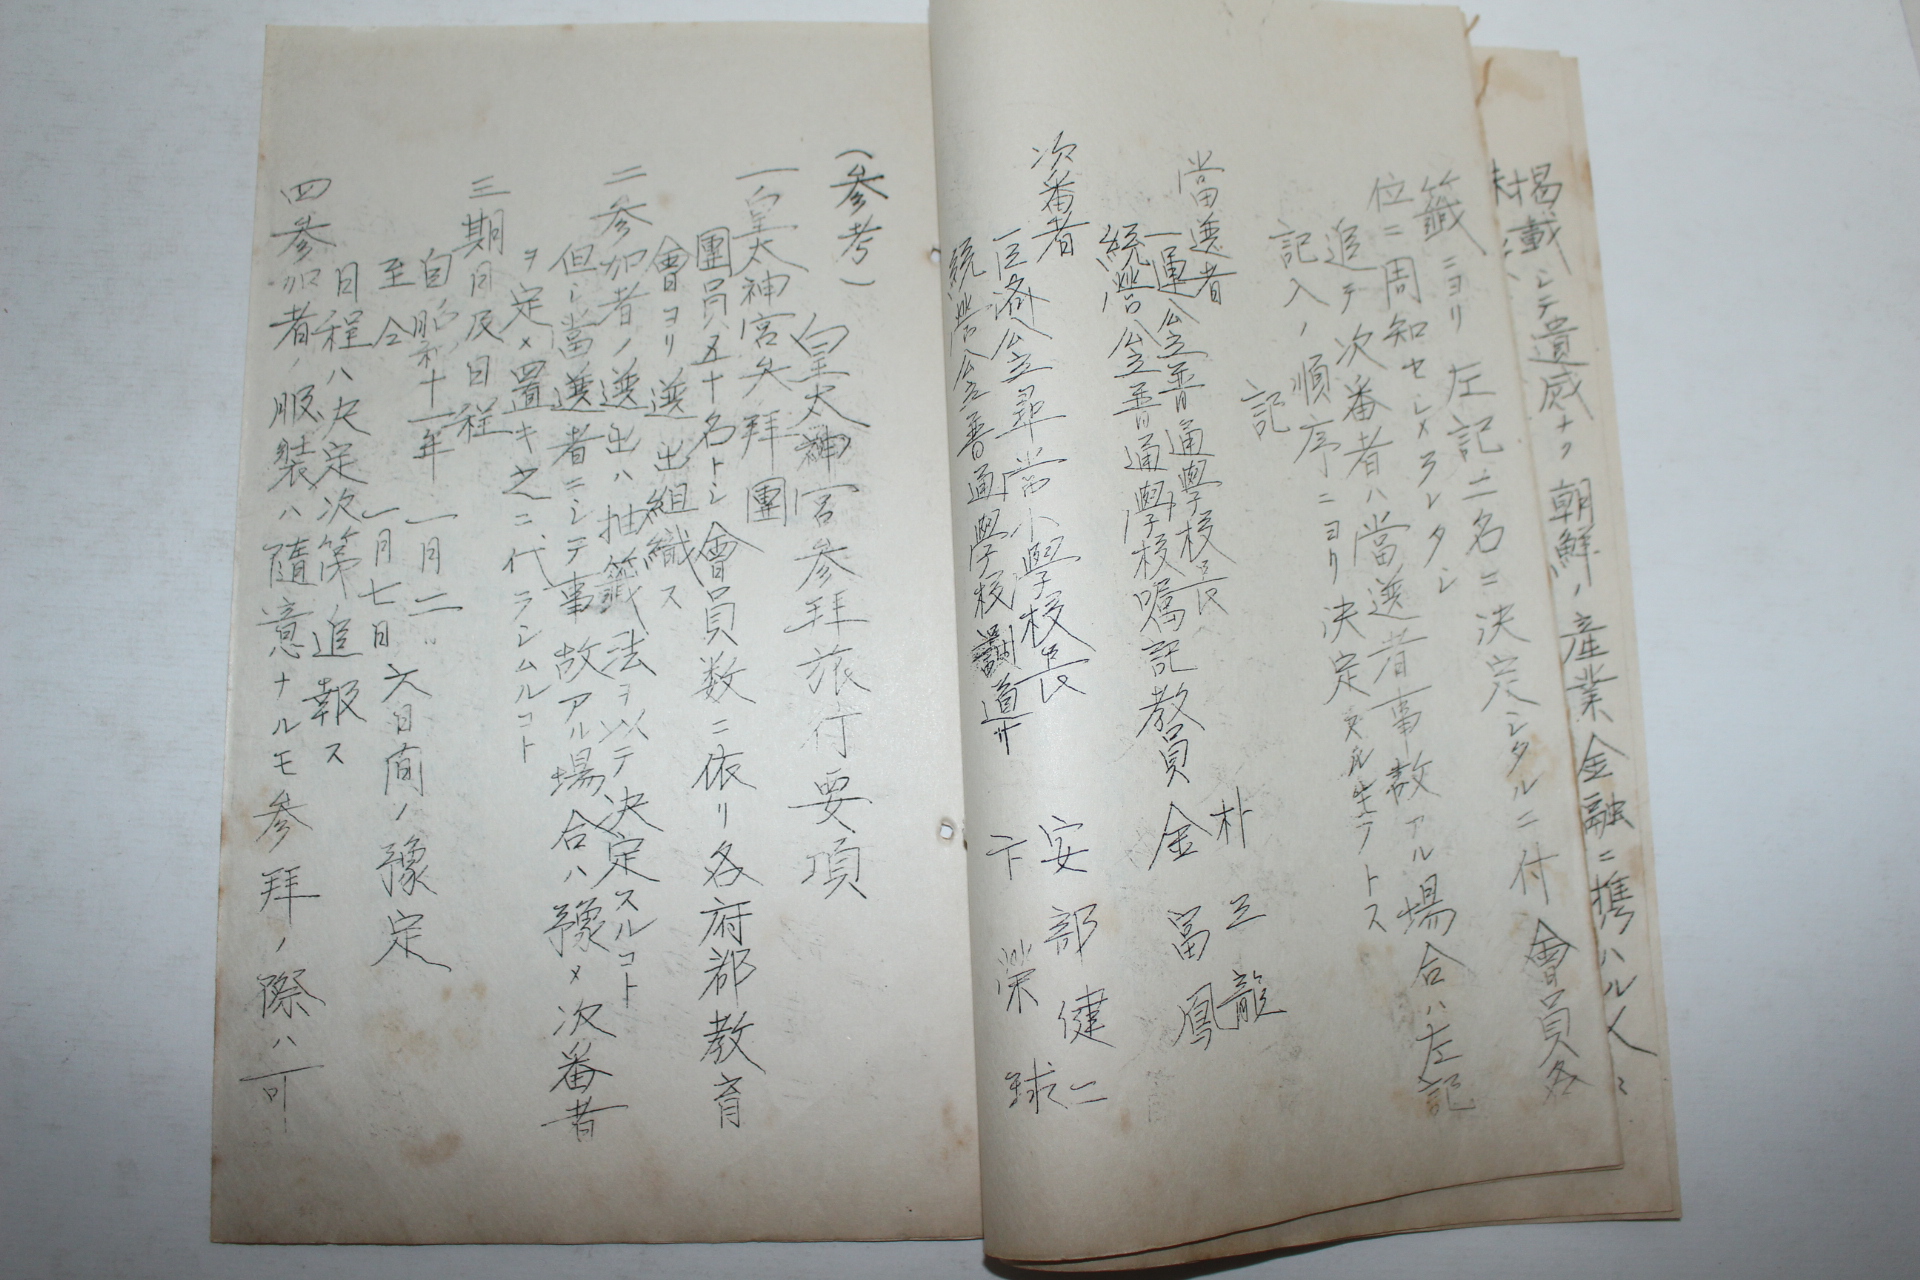 掲載シテ遺感ナク朝鮮ノ産業金融ニ携ハル人
籤ニヨリ左記二名ニ決定シタルニ付會員各
位ニ周知セシメラレタシ
追テ次番者ハ當選者事故アル場合ハ左記
記入ノ順序ニヨリ決定
記
當選者
一運公立普通學校長 朴 龍
統營公立普通學校囑託教員 金富鳳
次番者
巨濟公立尋常小學校長 安部健二
統營公立普通學校訓導 卞榮球
(参考)
皇太神宮参拜旅行要項
一皇太神宮矢拜團
團員ハ五十名トシ會員数ニ依リ各府郡教育
會ヨリ選出組織ス
二参加者ノ選出ハ抽籤法ヲ以テ決定スルコト
但シ當選者ニシテ事故アル場合ハ豫メ次番者
ヲ定メ置キ之ニ代ラシムルコト
三期日及日程
自昭和十一年一月二日
至仝 一月七日 六日間ノ豫定
日程ハ決定次第追報ス
四参加者ノ服装ハ隨意ナルモ参拜ノ際ハ可